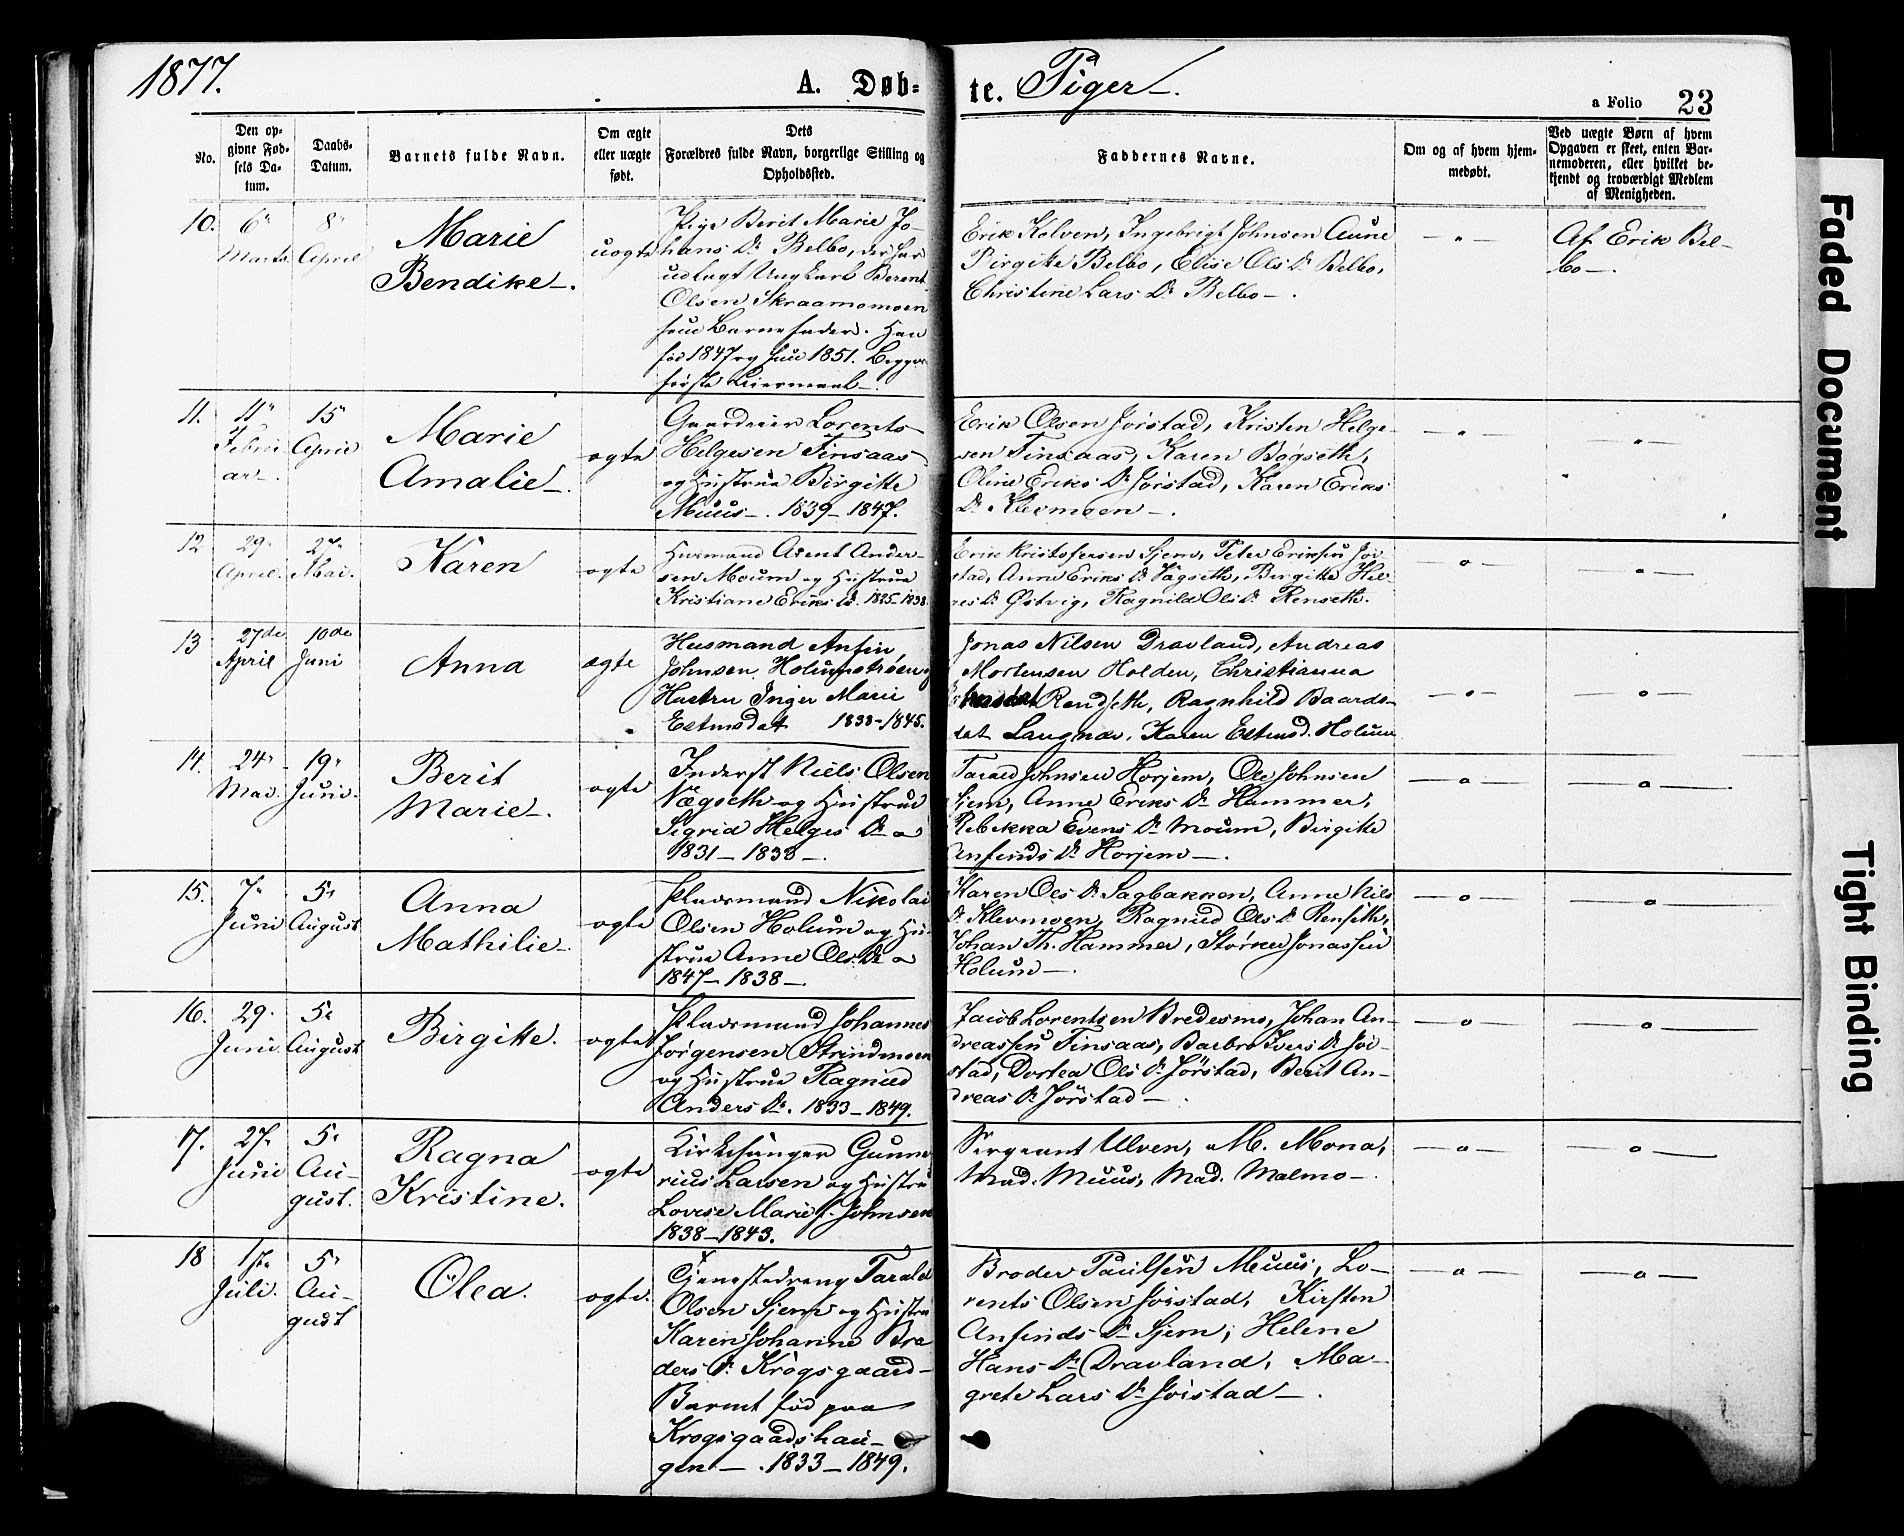 1877.
A. Døb-
te. Piger.
a Folio 23
No.
Den op-
givne Fød-
sels Da-
tum.
Daabs-
Datum.
Barnets fulde Navn.
Om ægte
eller uægte
født.
Dets
Forældres fulde Navn, borgerlige Stilling og
Opholdssted.
Faddernes Navne.
Om og af hvem hjem-
medøbt.
Ved uægte Børn af hvem
Opgaven er skeet, enten Bar-
nemoderen, eller hvilket be-
kjendt og troværdigt Medlem
af Menigheden.
10.
6
Marts
8
April
Marie
Bendike.
uægte
Pige Berit Marie Jo-
hans Dr Belbo, der har
udlagt Ungkarl Berent
Olsen Skraamomoen
som Barnefader. Han
fød 1847 og hun 1851. Begges
første Leiermaal.
Erik Kolven, Ingebrigt Johnsen Aune
Birgitte Belbo, Elise Ols Dr Belbo,
Christine Lars Dr Belbo.
Af Erik Bel-
bo.
11.
11
Febru
ar.
15
April
Marie
Amalie.
ægte
Gaardeier Lorents
Helgesen Finsaas
og Hustrue Birgitte
Muus. 1839-1847.
Erik Olsen Jørstad, Kristen Helge-
sen Finsaas, Karen Bøgseth,
Oline Eriks Dr Jørstad, Karen Eriks
Dr Klevmoen.
12
29
April.
27
Mai.
Karen
ægte
Husmand Arent Ander-
sen Moum og Hustrue
Kristiane Eriks Dr. 1825-1838.
Erik Kristofersen Sjem, Peter Eriksen Jør-
stad, Anne Eriks Dr Vægseth, Birgitte Hel-
ges Dr Østvig, Ragnild Ols Dr Renseth.
13
27de
April
10de
Juni
Anna
ægte
Husmand Anfin
Johnsen Holumstrøen og
Hustru Inger Marie
Estensdat 1833-1845.
Jonas Nilsen Dravland, Andreas
Mortensen Holden, Christianna
Rendseth, Ragnhild Baards-
dat Langnæs, Karen Estensd. Holum
14.
24
Mai.
19
Juni.
Berit
Marie.
ægte
Inderst Niels Olsen
Vægseth og Hustrue
Sigrid Helges Dr
1831-1833.
Tarald Johnsen Horjem, Ole Johnsen
Sjem, Anne Eriks Dr Hammer,
Rebekka Evens Dr Moum, Birgitte
Anfinds Dr Horjem.
15.
7
Juni
5
August
Anna
Mathilie.
ægte
Pladsmand Nikolai
Olsen Holum og Hu-
strue Anne Ols Dr
1847-1838.
Karen Ols Dr Sagbakken, Anne Nils
Dr Klevmoen, Ragnild Ols Dr Renseth,
Johan Th. Hammer, Størker Jonassen
Holum.
16.
29
Juni
5
August
Birgitte.
ægte
Pladsmand Johannes
Jørgensen Strindmoen
og Hustrue Ragnild
Anders Dr. 1833-1849.
Jacob Lorentsen Bredesmo, Johan An-
dreassen Finsaas, Barbro Ivers Dr Jør-
stad, Dortea Ols Dr Jørstad, Berit An-
dreas Dr Jørstad.
17.
27
Juni
5
Au-
gust.
Ragna
Kristine.
ægte
Kirkesanger Gunne
rius Larsen og Hustru
Lovise Marie f. Johnsen
1838-1843.
Sergeant Ulven, M. Mona,
Mad. Muus, Mad. Malmo.
18
1ste
Juli.
5
Au-
gust
Olea.
ægte.
Tjenestedreng Tarald
Olsen Sjem og Hustru
Karen Johanne Bra
ders Dr Krogsgaard
Barnet fød paa
Krogsgaardshau-
gen. 1833-1849.
Broder Paulsen Muus, Lo-
rents Olsen Jørstad, Kirsten
Anfinds Dr Sjem, Helene
Hans Dr Dravland, Ma-
grete Lars Dr Jørstad.
Faded Document
Tight Binding